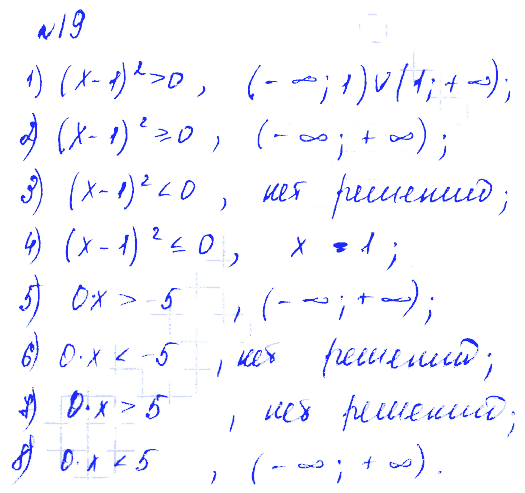 №19
1) (x-1)²>0, (-∞; 1)∪(1; +∞);
2) (x-1)²≥0, (-∞; +∞);
3) (x-1)²<0, нет решений;
4) (x-1)²≤0, x = 1;
5) 0·x > -5, (-∞; +∞);
6) 0·x < -5, нет решений;
7) 0·x > 5, нет решений;
8) 0·x < 5, (-∞; +∞).